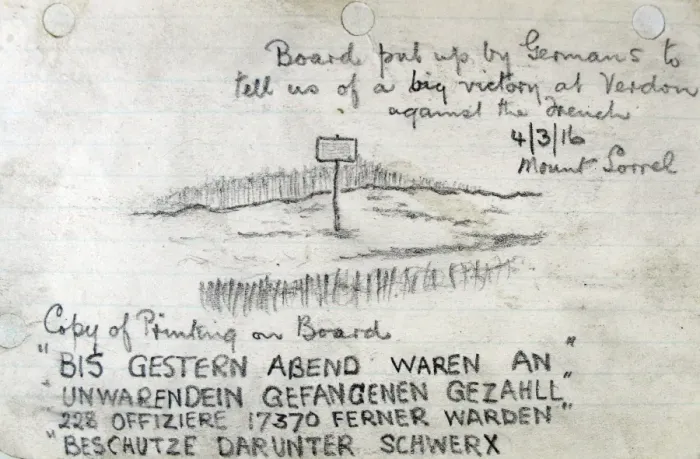 Board put up by Germans to
tell us of a big victory at Verdon
against the French
4/3/16
Mount Sorrel
Copy of Printing on Board
"BIS GESTERN ABEND WAREN AN"
"UNWARENDEIN GEFANGENEN GEZAHLL"
"228 OFFIZIERE 17370 FERNER WARDEN"
"BESCHUTZE DARUNTER SCHWERX